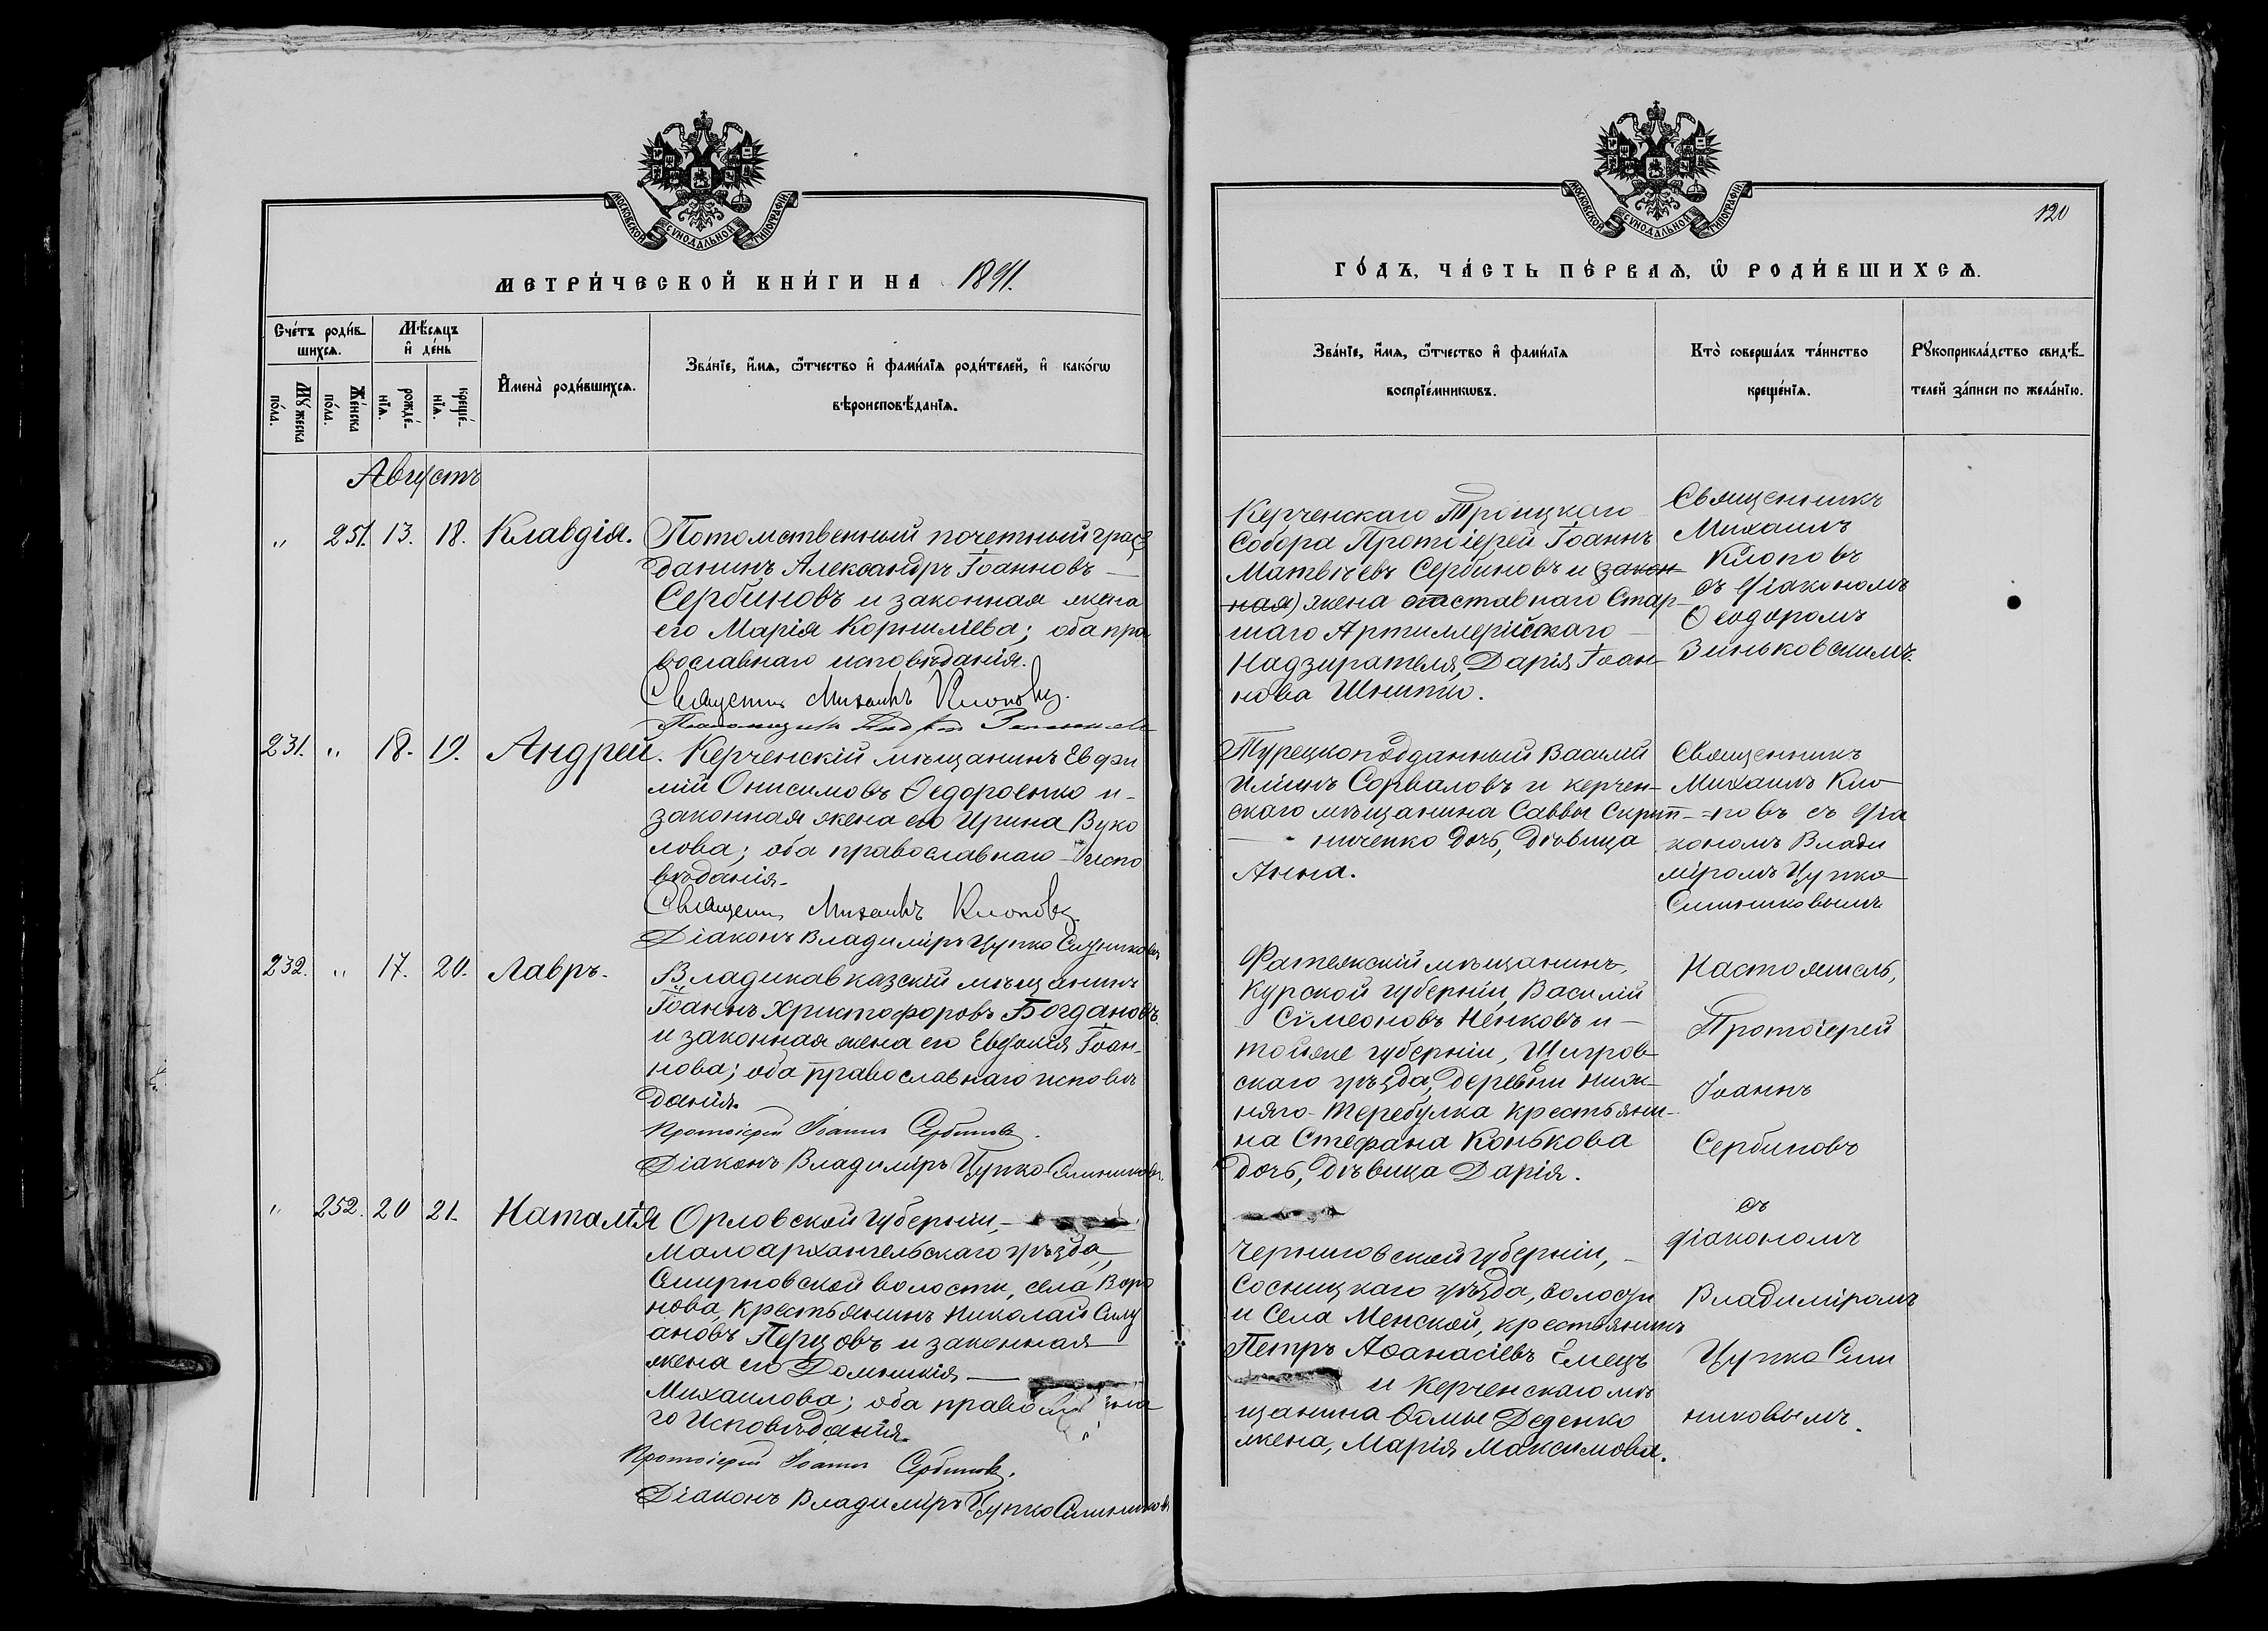 МОСКОВСКОЙ СѴНОДАЛЬНОЙ ТИПОГРАФІИ
МЕТРИ́ЧЕСКОЙ КНИ́ГИ НА 1891.
Сче́тъ роди́в-
шихсѧ.
Мѣ́сѧцъ
и҆ де́нь
Мꙋ́жеска
по́ла.
Же́нска
по́ла.
рожде́-
нїѧ.
креще́-
нїѧ.
И҆мена̀ роди́вшихсѧ.
Зва́нїе, и҆́мѧ, ѻ҆́тчество и҆ фами́лїѧ роди́телей, и҆ како́гѡ
вѣроисповѣ́данїѧ.
Августъ
" 251. 13. 18. Клавдія.
Потомственный почетный граж
данинъ Александръ Іоанновъ
Сербиновъ и законная жена
его Марія Корнилiева; оба пра
вославнаго исповѣданія.
Священ. Михаилъ Клоповъ.
231. " 18. 19. Андрей.
Керченскій мѣщанинъ Евфи
мій Онисимовъ Ѳедоровенко и
законная жена его Ирина Вуко
лова; оба православнаго испо
вѣданія.
Священ. Михаилъ Клоповъ.
Діаконъ Владиміръ Цупко Ситниковъ
232. " 17. 20. Лавръ.
Владикавказскій мѣщанинъ
Іоаннъ Христофоровъ Богдановъ
и законная жена его Евдокія Іоан-
нова; оба православнаго исповѣ
данія.
Протоіерей Іоаннъ Сербиновъ.
Діаконъ Владиміръ Цупко-Ситниковъ
" 252. 20 21. Наталія
Орловской губерніи,
Малоархангельскаго уѣзда,
Смирновской волости, села Воро
нова, крестьянинъ Николай Силу
ановъ Перцовъ и законная
жена его Домникія
Михаилова; оба православна
го исповѣданія.
Протоіерей Іоаннъ Сербиновъ.
Діаконъ Владиміръ Цупко Ситников
МОСКОВСКОЙ СѴНОДАЛЬНОЙ ТИПОГРАФІИ
120
ГО́ДЪ, ЧА́СТЬ ПЕ́РВАѦ, Ѡ҆ РОДИ́ВШИХСѦ.
Зва́нїе, и҆́мѧ, ѻ҆́тчество и҆ фами́лїѧ
воспрїе́мникѡвъ.
Кто̀ соверша́лъ та́инство
креще́нїѧ.
Рꙋкоприкла́дство свидѣ́-
телей за́писи по жела́нїю.
Керченскаго Троицкаго
Собора Протоіерей Іоаннъ
Матвѣевъ Сербиновъ и (закон
ная) жена отставнаго Стар-
шаго Артиллерійскаго
Надзирателя, Дарія Іоан-
нова Шнитко.
Священникъ
Михаилъ
Клоповъ
съ діакономъ
Ѳеодоромъ
Зиньковскимъ.
Турецкоподданный Василій
Ильинъ Сорваловъ и керчен-
скаго мѣщанина Саввы Скрип-
ниченко дочь, дѣвица
Анна.
Священникъ
Михаилъ Кло
=повъ съ діа
кономъ Влади
міромъ Цупко
Ситниковымъ
Фатежскій мѣщанинъ,
Курской губерніи, Василій
Сѵмеоновъ Ненковъ и
тойже губерніи, Щигров
скаго уѣзда, деревни Ниж-
няго-Теребужа крестьяни-
на Стефана Конькова
дочь, дѣвица Дарія.
Настоятель,
Протоіерей
Іоаннъ
Сербиновъ
съ
діакономъ
Владиміромъ
Цупко Сит
никовымъ.
Черниговской губерніи,
Сосницкаго уѣзда, волости
и Села Менской, крестьянинъ
Петръ Аѳанасіевъ Емецъ
и керченскаго мѣ
щанина Ѳомы Деденко
жена, Марія Максимова.